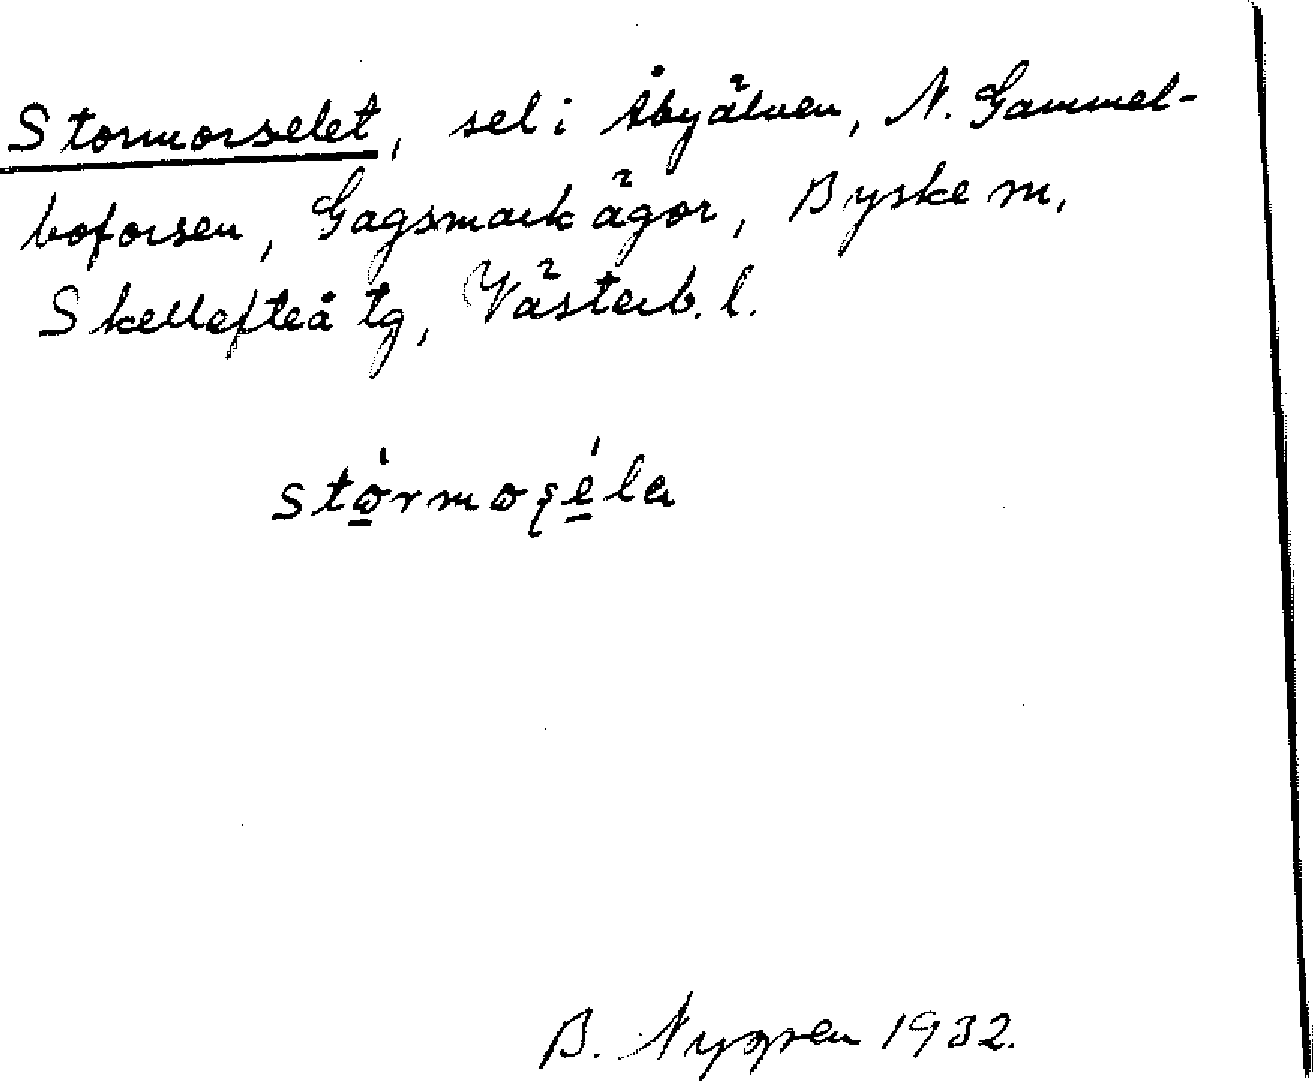 Stormorselet, sel i Åbyälven, N. Gammel-
boforsen, Gagsmark ägor, Byske sn,
Skellefteå tg, Västerb. l.
stò̱rmoʂé̱la
B. Nygren 1932.